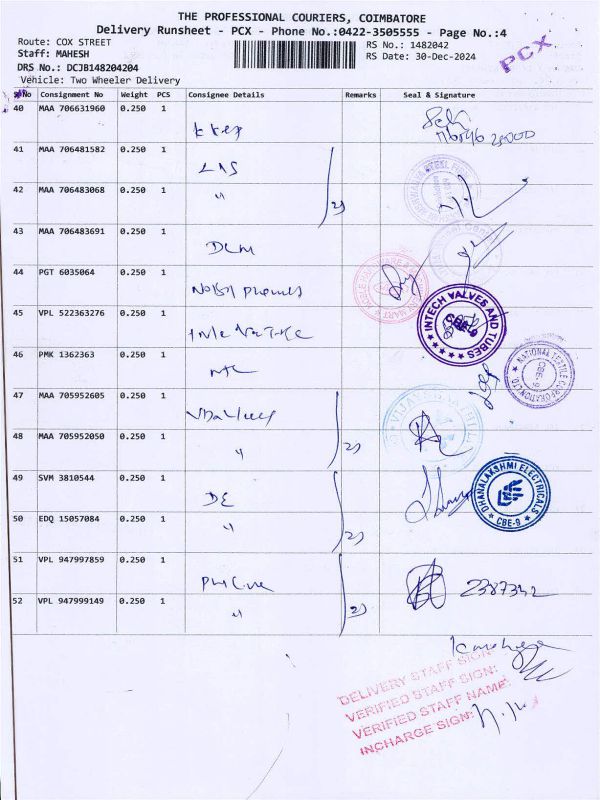 THE PROFESSIONAL COURIERS, COIMBATORE
Delivery Runsheet - PCX - Phone No.:0422-3505555 - Page No.:4
Route: COX STREET
RS No.: 1482042
Staff: MAHESH
RS Date: 30-Dec-2024
PCX
DRS No.: DCJB148204204
Vehicle: Two Wheeler Delivery
No Consignment No Weight PCS Consignee Details Remarks Seal & Signature
40 MAA 706631960 0.250 1
41 MAA 706481582 0.250 1
LNS
42 MAA 706483068 0.250 1
"
43 MAA 706483691 0.250 1
DLM
44 PGT 6035064 0.250 1
45 VPL 522363276 0.250 1
INTECH VALVES AND TUBES
CBE-9
46 PMK 1362363 0.250 1
NTC
NATIONAL TEXTILE CORPORATION LTD
CBE-9
47 MAA 705952605 0.250 1
48 MAA 705952050 0.250 1
"
49 SVM 3810544 0.250 1
DE
DHANALAKSHMI ELECTRICALS
CBE-9
50 EDQ 15057084 0.250 1
"
51 VPL 947997859 0.250 1
2387342
52 VPL 947999149 0.250 1
"
DELIVERY STAFF SIGN:
VERIFIED STAFF SIGN:
VERIFIED STAFF NAME:
INCHARGE SIGN: